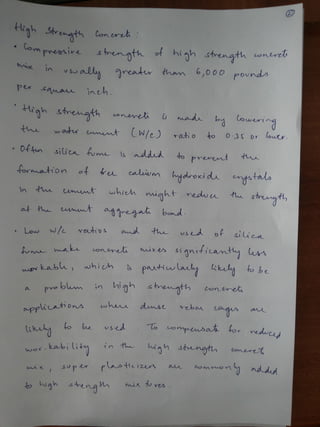 High Strength Concrete:
• Compressive strength of high strength concrete
mix in usually greater than 6,000 pounds
per square inch.
• High strength concrete is made by lowering
the water cement (W/c) ratio to 0.35 or lower.
• Often silica fume is added to prevent the
formation of free calcium hydroxide crystals
in the cement which might reduce the strength
at the cement aggregate bond.
• Low W/c ratios and the used of silica
fume make concrete mixes significantly less
workable, which is particularly likely to be
a problem in high strength concrete
applications where dense rebar cages are
likely to be used. To compensate for reduced
workability in the high strength concrete
mix, super plasticizers are commonly added
to high strength mixtures.